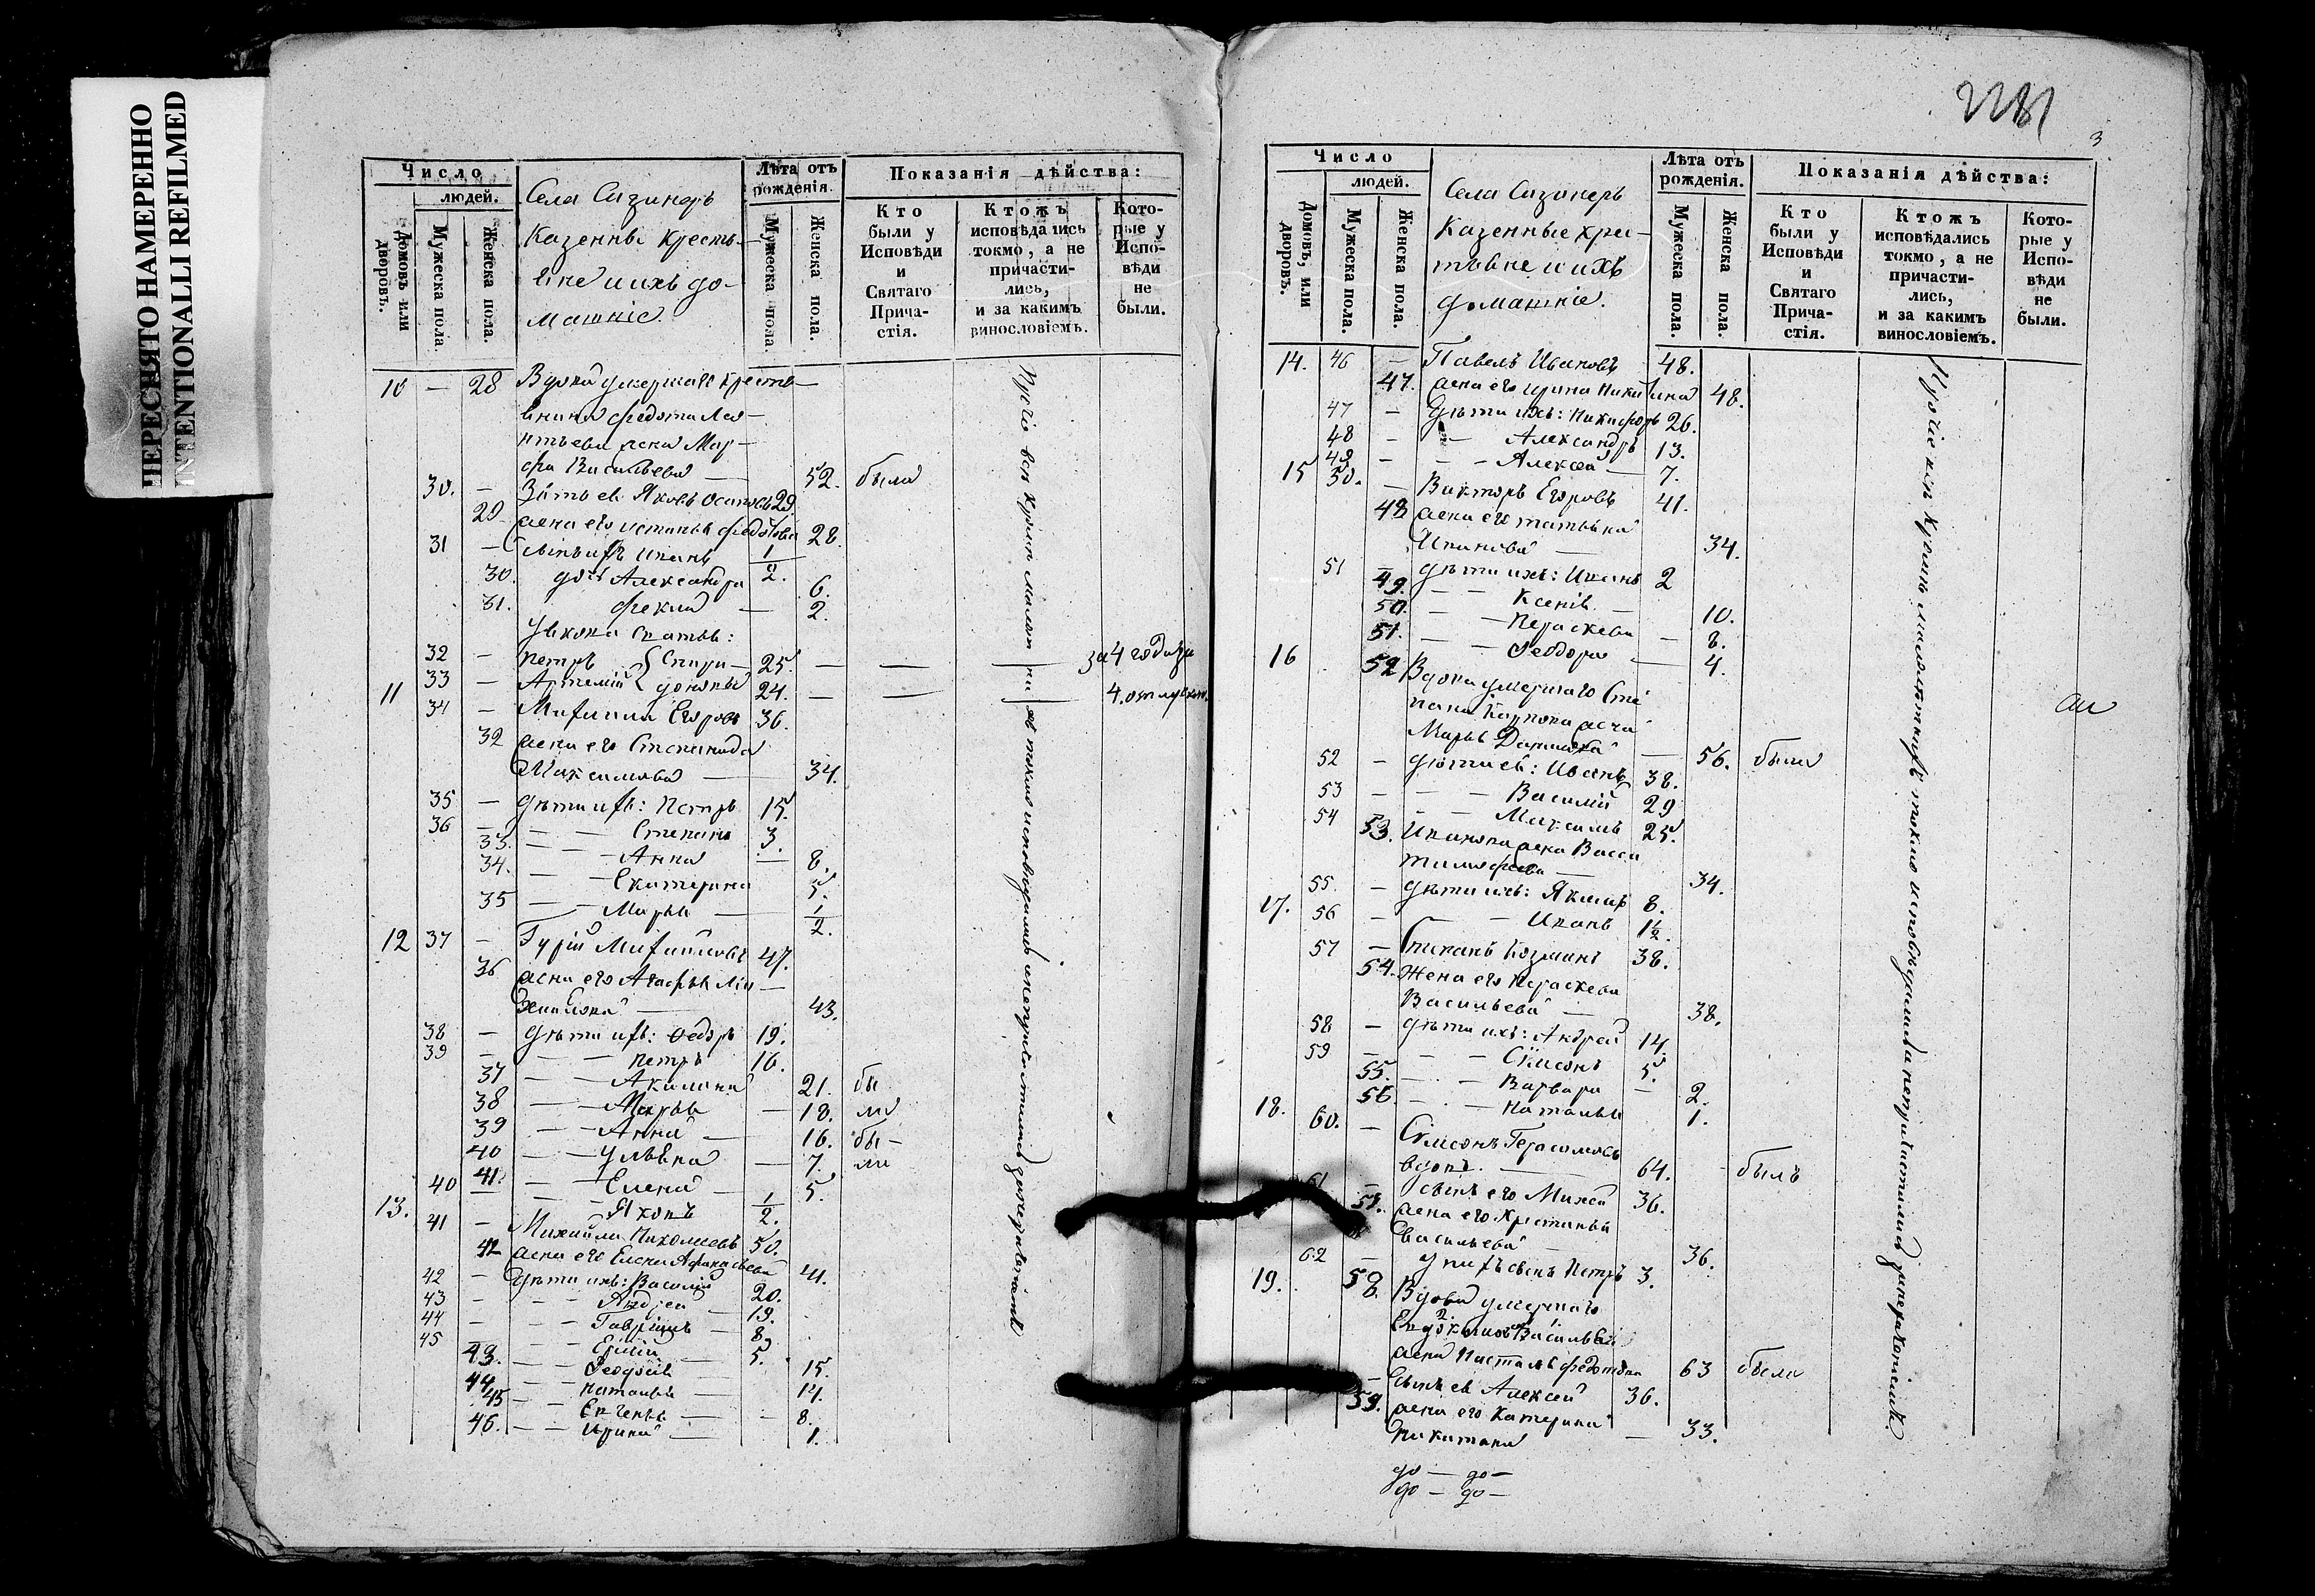 ПЕРЕСНЯТО НАМЕРЕННО
INTENTIONALLI REFILMED
Число
людей.
Домовъ или дворовъ.
Мужеска пола.
Женска пола.
Села
Казенны кресть-
яне и ихъ до-
машніе.
Лѣта отъ рожденія.
Мужеска пола.
Женска пола.
Показанія дѣйства:
Кто были у Исповѣди и Святаго Прича-стія.
Ктожъ исповѣдались токмо, а не причасти-лись, и за какимъ винословіемъ.
Кото-рые у Испо-вѣди не были.
10 — 28 Вдова умершаго кресть-
янина Федота
жена Мар-
фа Васильева 52. была
30. — Зять ея Яковъ Осиповъ 29.
29 жена его Устинья Федотова 28.
31 — Сынъ ихъ Иванъ 1/2.
30. дочь Александра 6.
31. Фекла — 2.
32 — Петръ 25. — — за 4 года
33 — Артемій 24. — — 4.
11 34 — Михаила Егоровъ 36.
32 жена его Степанида
Максимова — 34.
35 — дѣти ихъ: Петръ 15.
36 — — — Степанъ 3.
33. — — Анна — 8.
34. — — Екатерина 5.
35 — — Марья — 1/2.
12 37 — Гурій Михайловъ 47.
36 жена его Агафья
43.
38 — дѣти ихъ: Ѳедоръ 19.
39 — — — Петръ 16.
37 — — Акилина 21. бы
38 — — Марья — 18. ли
39 — — Анна — 16. бы —
40 — — Ульяна — 7. ли
41. — — Елена — 5.
40 — — — Яковъ 1/2.
13. 41 — Михаила Николаевъ 50.
42 жена его Елена Афанасьева 41.
42 — Дѣти ихъ: Василій 20.
43 — — — Андрей — 19.
44 — — — Гавріилъ — 8.
45 — — 5.
43. — — Ѳеодосія 15.
44 — — Наталья — 14.
45 — — Евгенья — — 8.
46. — — Ирина — 1.
3
Число
людей.
Домовъ, или дворовъ.
Мужеска пола.
Женска пола.
Села
Казенные крес-
тьяне и ихъ
домашніе.
Лѣта отъ рожденія.
Мужеска пола.
Женска пола.
Показанія дѣйства:
Кто были у Исповѣди и Святаго Прича-стія.
Ктожъ исповѣдались токмо, а не причасти-лись, и за какимъ винословіемъ.
Кото-рые у Испо-вѣди не были.
14. 46 — Павелъ Ивановъ 48.
47. жена его Ирина Никитина 48.
47 — Дѣти ихъ: Никифоръ 26.
48 — — Александръ 13.
49 — — — Алексей — 7.
15 50. — Викторъ Егоровъ 41.
48 жена его Татьяна
Иванова — 34.
51 — дѣти ихъ: Иванъ 2
49. — — Ксенія — 10.
50. — — Пераскева — 8.
51. — — Ѳеодора — 4.
16 52 Вдова умершаго Сте
пана Карпова жена
Марья — 56. была
52 — дѣти ея: Иванъ 38.
53 — — — Василій 29
54 — — Максимъ 25.
53. Иванова жена Васса
Тимофеева — 34.
55. — дѣти ихъ: Якимъ 8.
17. 56 — — — Иванъ 1 1/2.
57 — Степанъ Козминъ 38.
54. Жена его Пераскева
Васильева — 38.
58 — дѣти ихъ: Андрей 14.
59 — — — Симеонъ 5.
55. — — Варвара — 2.
56. — — Наталья 1.
18. 60. — Симеонъ Герасимовъ
вдовъ. — 64. — былъ
61 — сынъ его Михей 36.
57. жена его Христинья
Васильева — 36.
62 — у нихъ сынъ Петръ 3.
19. 58. Вдова умершаго
Евдокима Васильева
жена Настасья Федотова 63 была
Сынъ ея Алексей 36.
59. жена его Катерина
Никитина — 33.
до — до —
до — до —